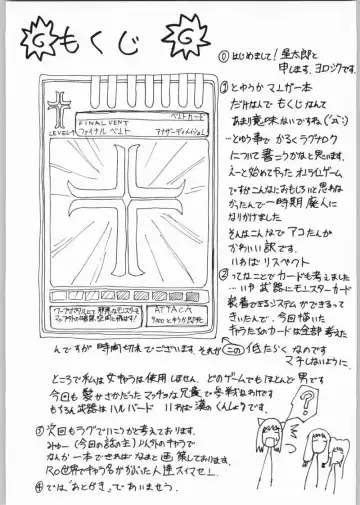 G もくじ G
① はじめまして! 星太郎と
申します、ヨロシクです。
② とゆうか マユガー本
だけなんで もくじなんて
あまり意味ないですね。
…とゆう事で かるくラグナロク
について書こうかなと思います。
えーと始めてやった オンラインゲーム
ですがこんなにおもしろいと思わな
かったんで一時期 廃人に
なりかけました
そんなこんなで アコたんが
かわいい訳です。
いわば リスペクト
② ってなことで カードも考えました
…いや 武器にモンスターカード
装着できるシステムができるって
きいたんで、今回描いた
キャラたちのカードは全部考えた
んですが時間切れでございます。それがこの低たらくなのです
マチしないように。
FINAL VENT
ファイナル ベント
ベントカード
アナザーディメイション
LEVEL 4
ATTACK
ところで私は女キャラは使用しません、どのゲームでもほとんど男です
今回も髪さかだった マッチョな兄貴で参戦なわけです
もちろん武器は ハルバード いわば 漢のくんしょうです。
③ 次回もラグでいこうかと考えております、
みゅー (今回の誌の主) 以外のキャラで
なんか一本できればなぁと画策しております。
RO世界でキャラ名かぶった人達スイマセン、
④ では"あとがき"であいませう。
?